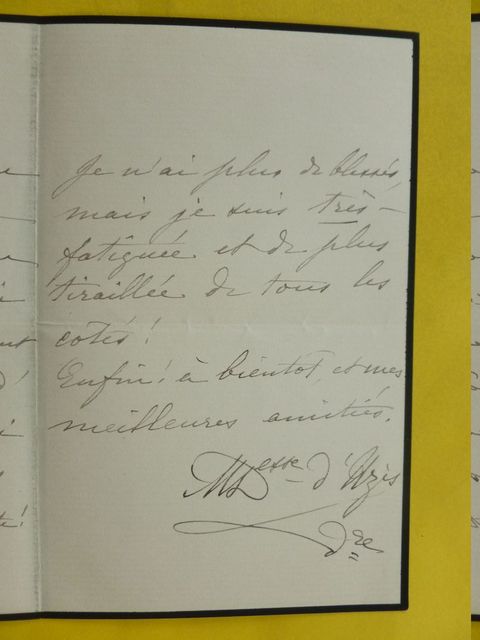 Je n'ai plus de blessés,
mais je suis très-
fatiguée et de plus
tiraillée de tous les
cotés!
Enfin! à bientot, et mes
meilleures amitiés.
Desse d'Uzès
Dre